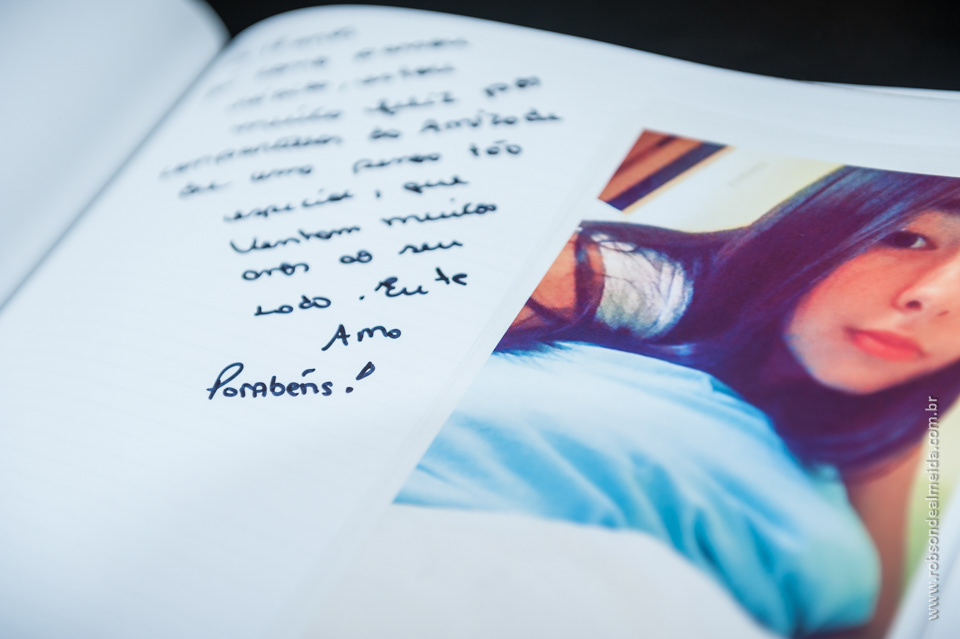 muito feliz por
compartilhar da Amizade
de uma pessoa tão
especial, que
Venham muitos
anos ao seu
lado. Eu te
Amo
Parabéns!
www.robsondealmeida.com.br